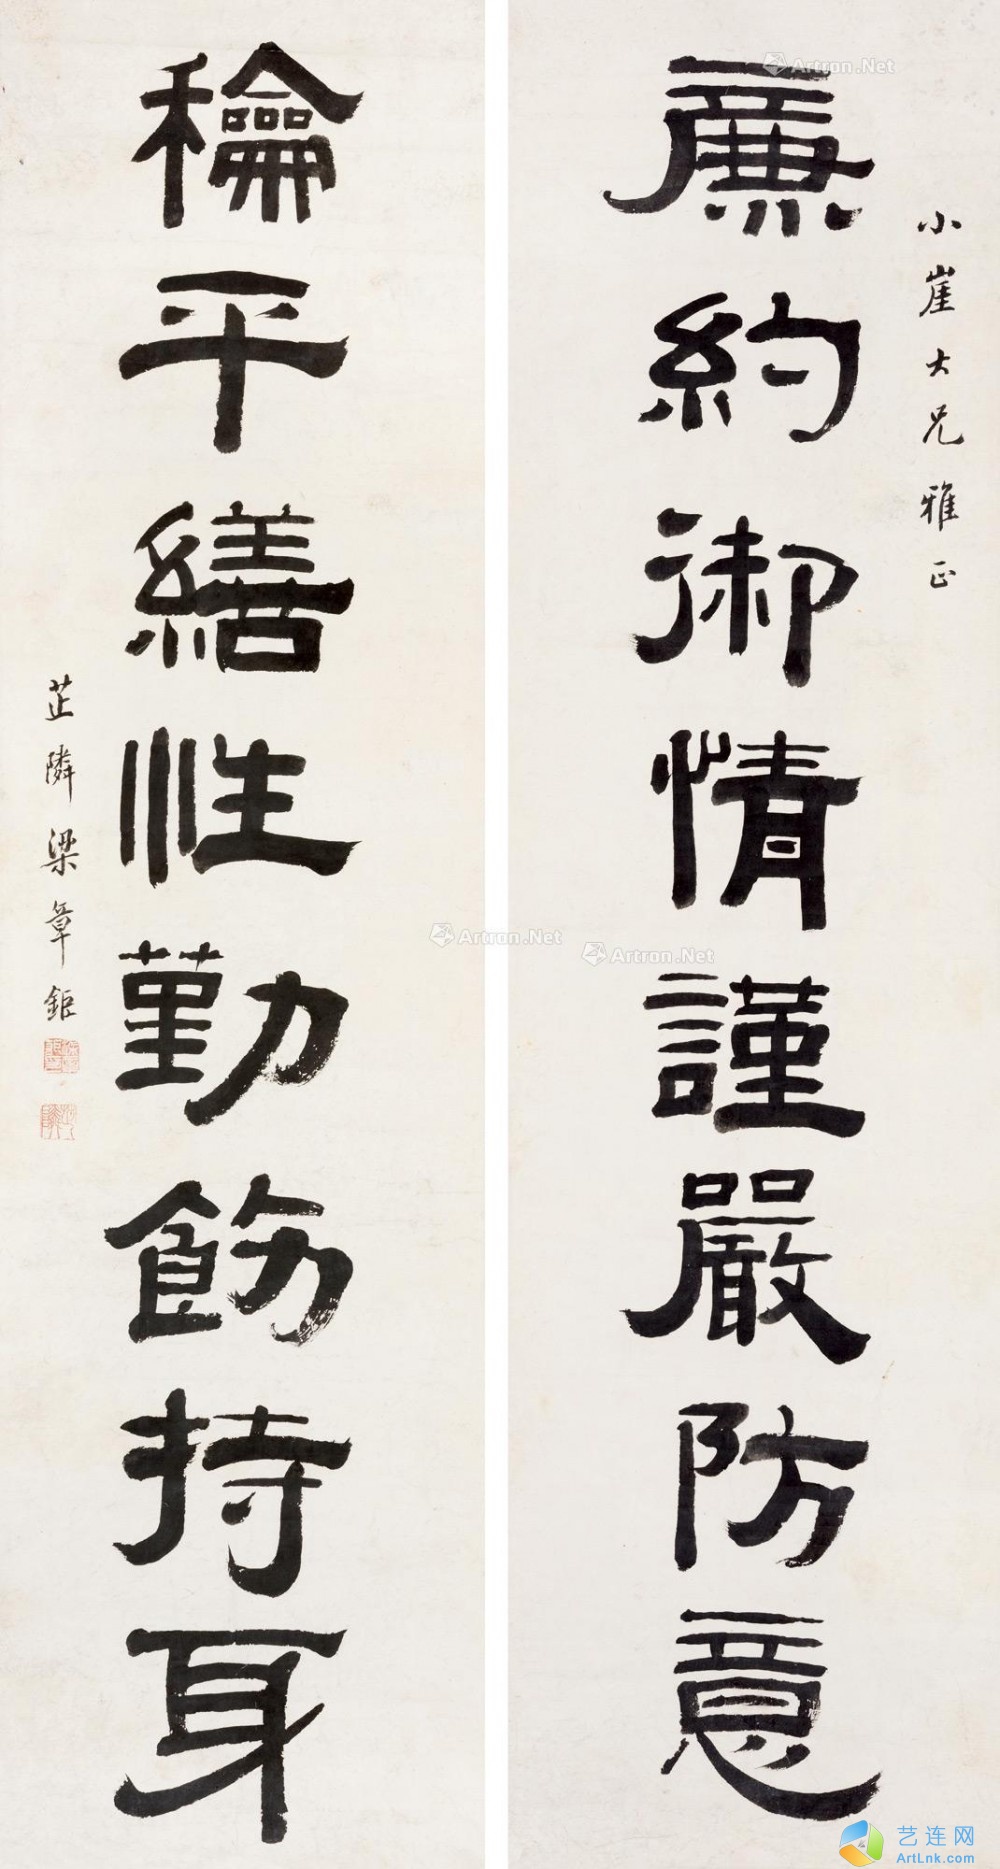 小崖大兄雅正
廉約御情謹嚴防意
龢平繕性勤飭持身
芷隣梁章鉅
Artron.Net
Artron.Net
Artron.Net
艺连网
ArtLnk.com